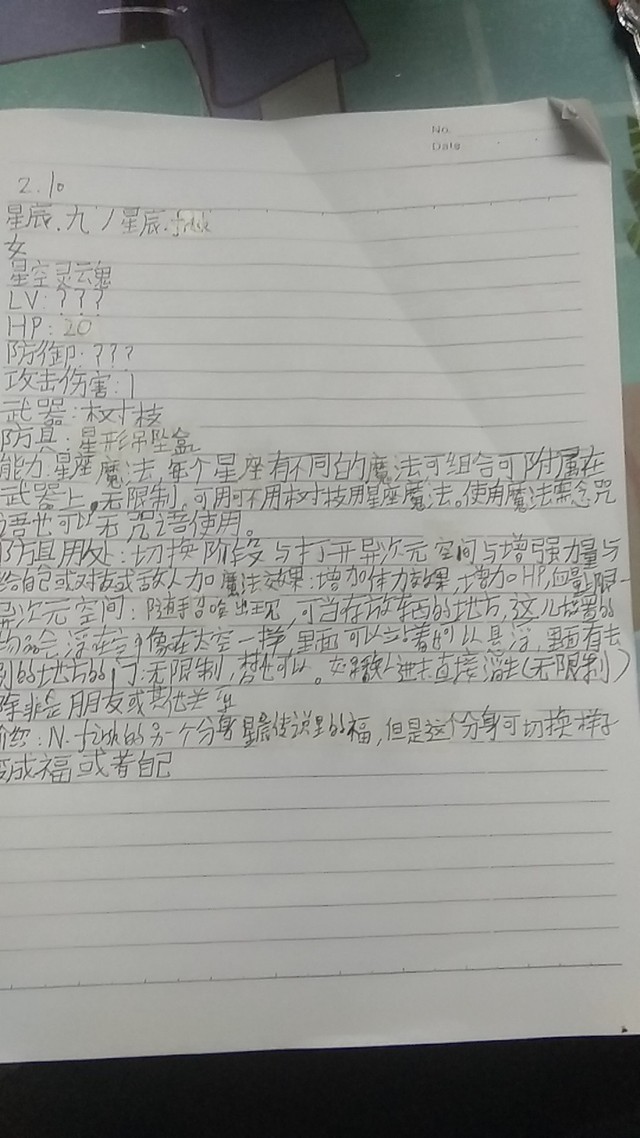 No.
Date
2.10
星辰.九/星辰.frisk
女
星空灵魂
LV:???
HP:20
防御:???
攻击伤害:1
武器:树枝
防具:星形吊坠盒
能力:星座魔法,每个星座有不同的魔法可组合可附属在
武器上。无限制,可用可不用树枝用星座魔法。使用魔法需念咒
语也可以无咒语使用。
防具用处:切换阶段与打开异次元空间与增强力量与
给自己或对友或敌人加魔法效果:增加体力效果,增加HP,
异次元空间:随手召唤出现,可当存放东西的地方,这儿放置的
物品会浮在空中像在太空一样,里面可以站着可以悬浮,里面有去
别的地方的门:无限制,都也可以。如果敌人进去直接消失(无限制)
除非是朋友或其他
介绍:N.frisk的另一个分身星辰传说里的福,但是这个分身可切换样子
变成福或者自己